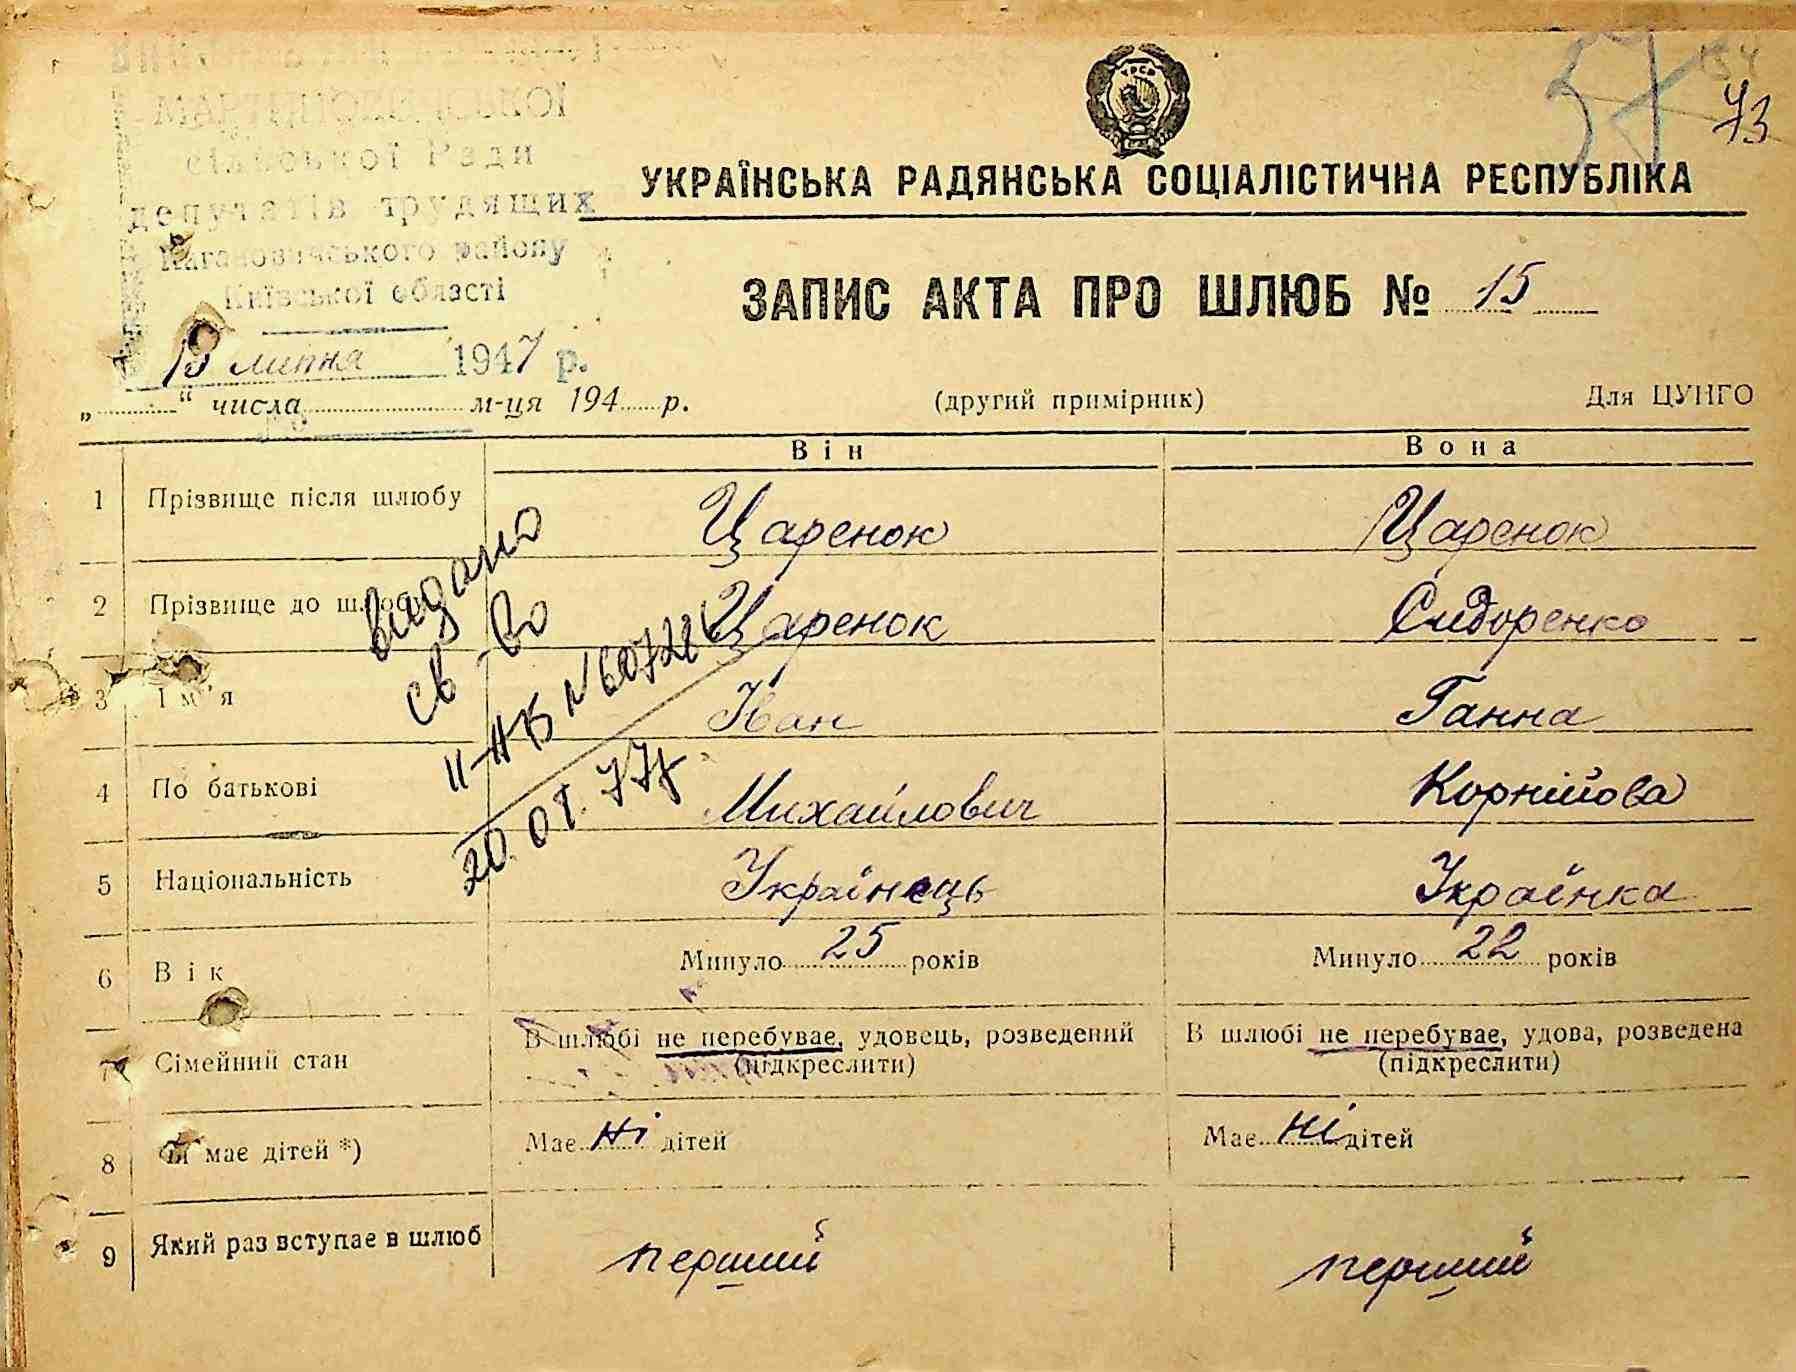 сільської Ради
депутатів трудящих
Кагановичського району
Київської області
15 липня 1947 р.
„ “ числа м-ця 194 р.
УРСР
73
УКРАЇНСЬКА РАДЯНСЬКА СОЦІАЛІСТИЧНА РЕСПУБЛІКА
ЗАПИС АКТА ПРО ШЛЮБ № 15
(другий примірник) Для ЦУНГО
Він Вона
1 Прізвище після шлюбу Царенок Царенок
2 Прізвище до шлюбу Царенок Сидоренко
3 Ім’я Іван Ганна
4 По батькові Михайлович Корнійова
5 Національність Українець Українка
6 Вік Минуло 25 років Минуло 22 років
7 Сімейний стан В шлюбі не перебуває, удовець, розведений В шлюбі не перебуває, удова, розведена
(підкреслити) (підкреслити)
8 Чи має дітей *) Має ні дітей Має ні дітей
9 Який раз вступає в шлюб перший перший
видано
св-во
II-
20.01.77р